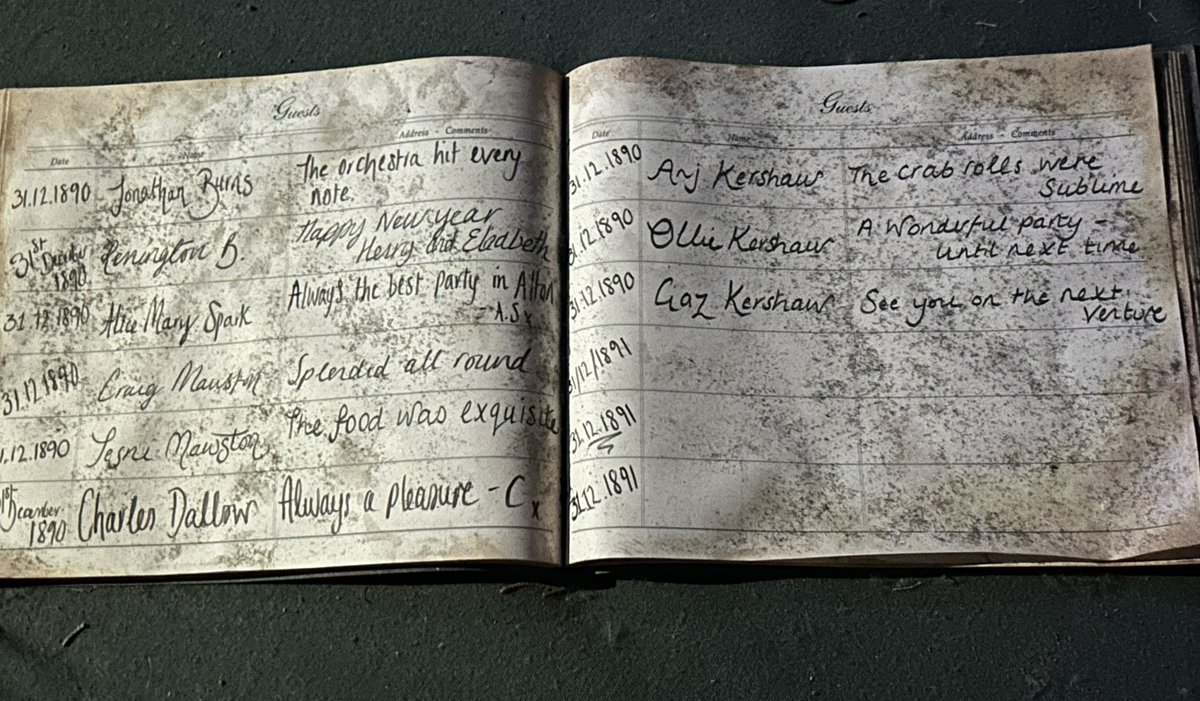 Guests
Date Address - Comments
31.12.1890 Jonathan Burns The orchestra hit every
note.
31st December 1890 Penington B. Happy New year
Henry and Elizabeth
31.12.1890 Alice Mary Spark Always the best party in Alton
- A.S x
31.12.1890 Craig Mawston Splendid all round
1.12.1890 Mawston The food was exquisite
1st December 1890 Charles Dallow Always a pleasure - C x
Guests
Date Name Address - Comments
31.12.1890 Arj Kershaw The crab rolls were
Sublime
31.12.1890 Ollie Kershaw A Wonderful party -
until next time
31.12.1890 Gaz Kershaw See you on the next
venture
31/12/1891
31.12.1891
31.12.1891